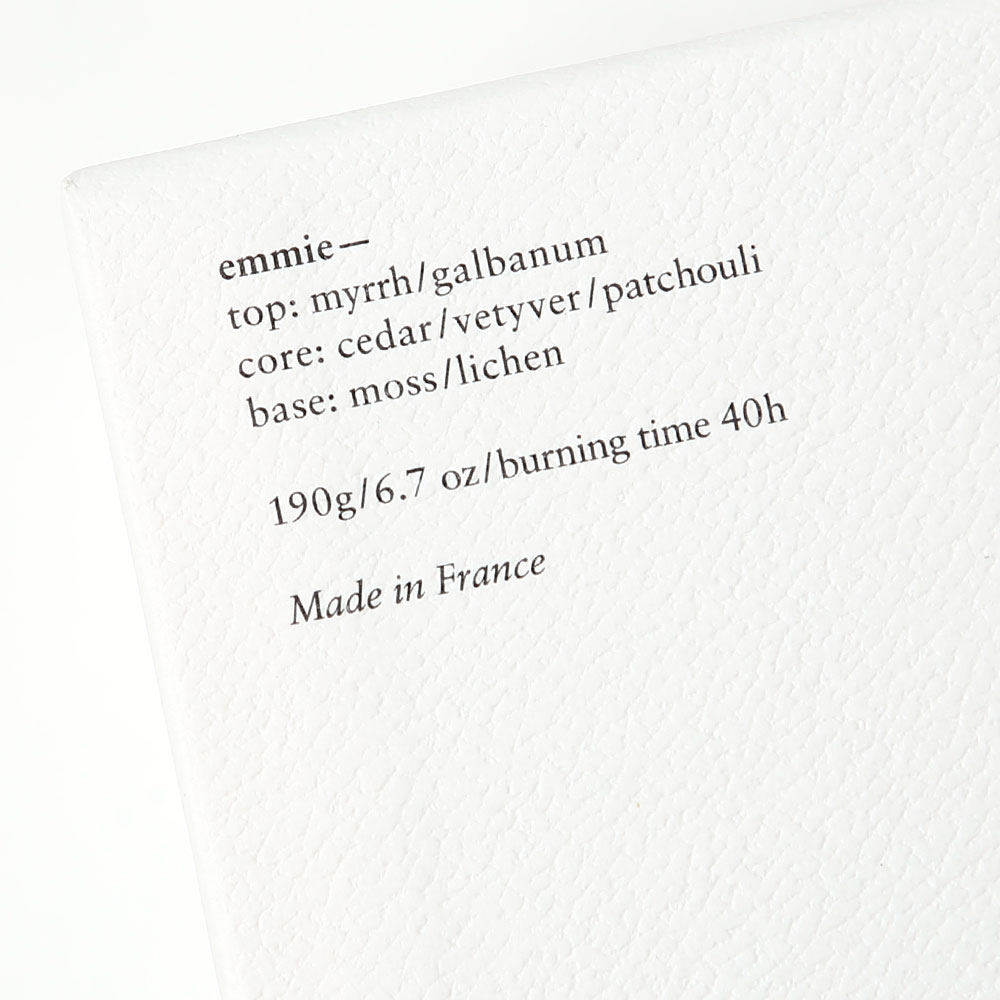 emmie—
top: myrrh/galbanum
core: cedar/vetyver/patchouli
base: moss/lichen
190g/6.7 oz/burning time 40h
Made in France